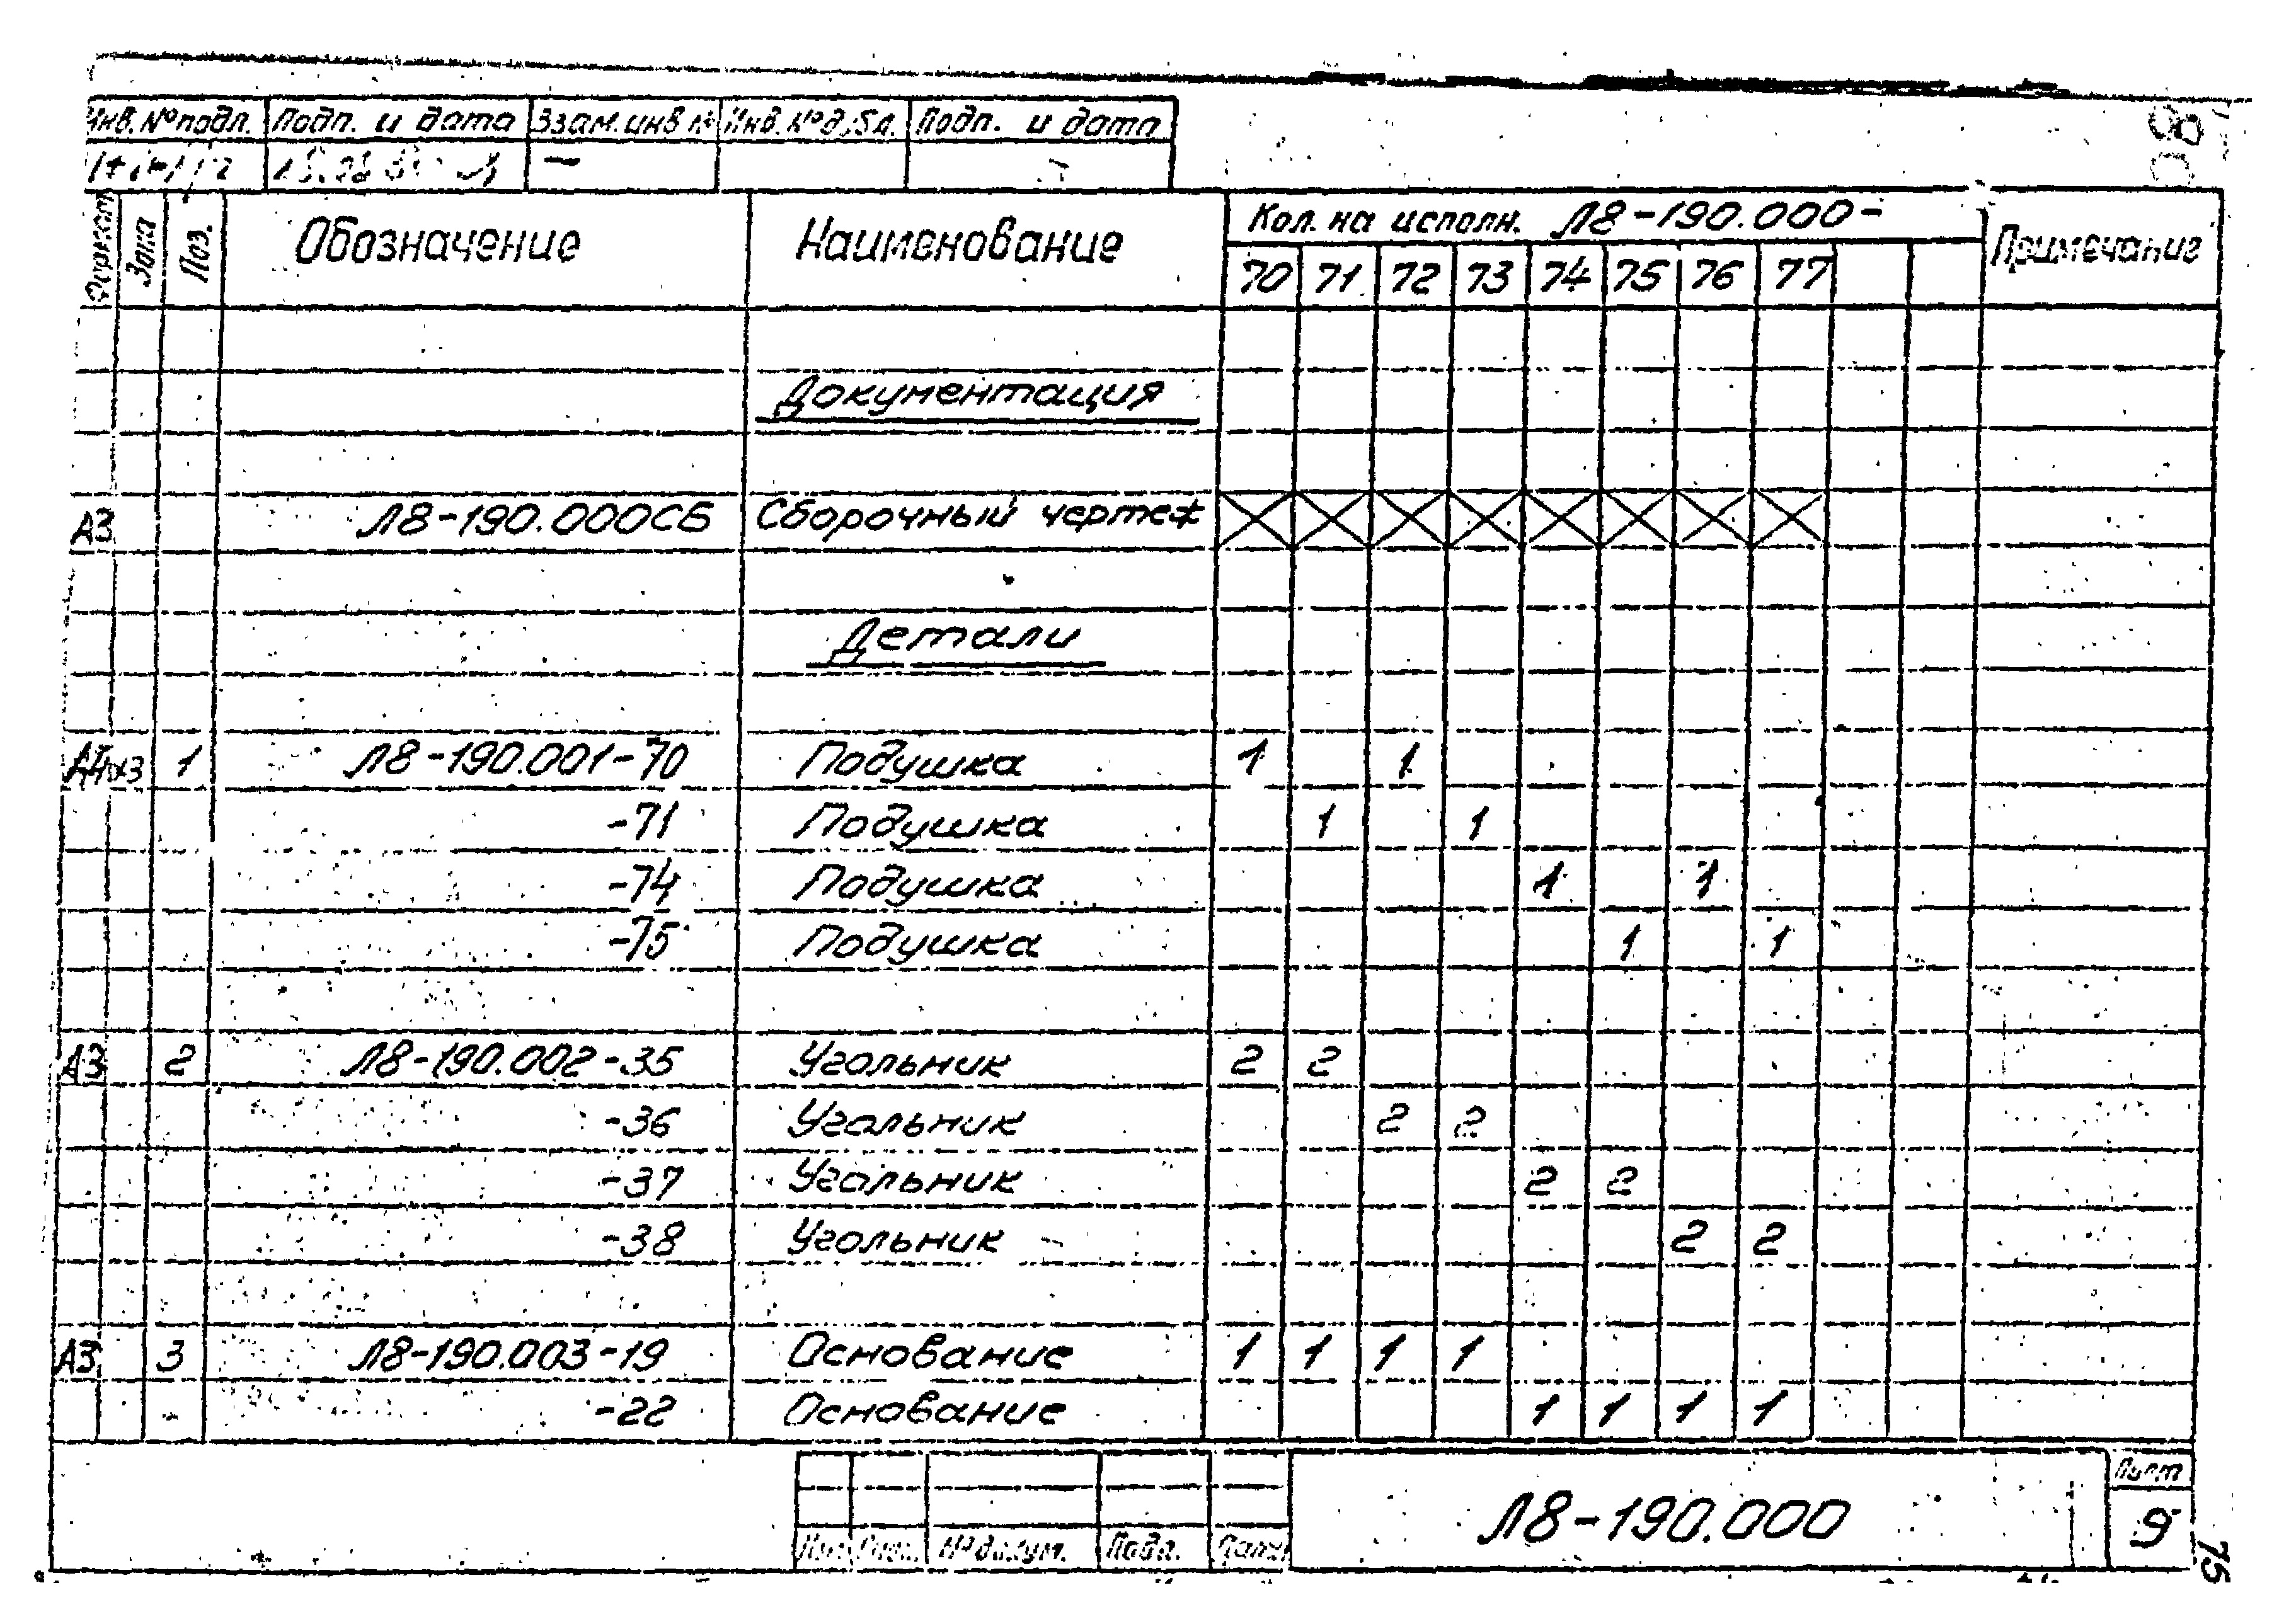 Инв. № подл. Подп. и дата Взам. инв № Инв. № дубл. Подп. и дата
—
Формат Зона Поз. Обозначение Наименование Кол. на исполн. Л8-190.000- Примечание
70 71 72 73 74 75 76 77
Документация
А3 Л8-190.000СБ Сборочный чертеж
Детали
А4х3 1 Л8-190.001-70 Подушка 1 1
-71 Подушка 1 1
-74 Подушка 1 1
-75 Подушка 1 1
А3 2 Л8-190.002-35 Угольник 2 2
-36 Угольник 2 2
-37 Угольник 2 2
-38 Угольник 2 2
А3 3 Л8-190.003-19 Основание 1 1 1 1
-22 Основание 1 1 1 1
№ докум. Подп. Дата
Л8-190.000
Лист
9
75